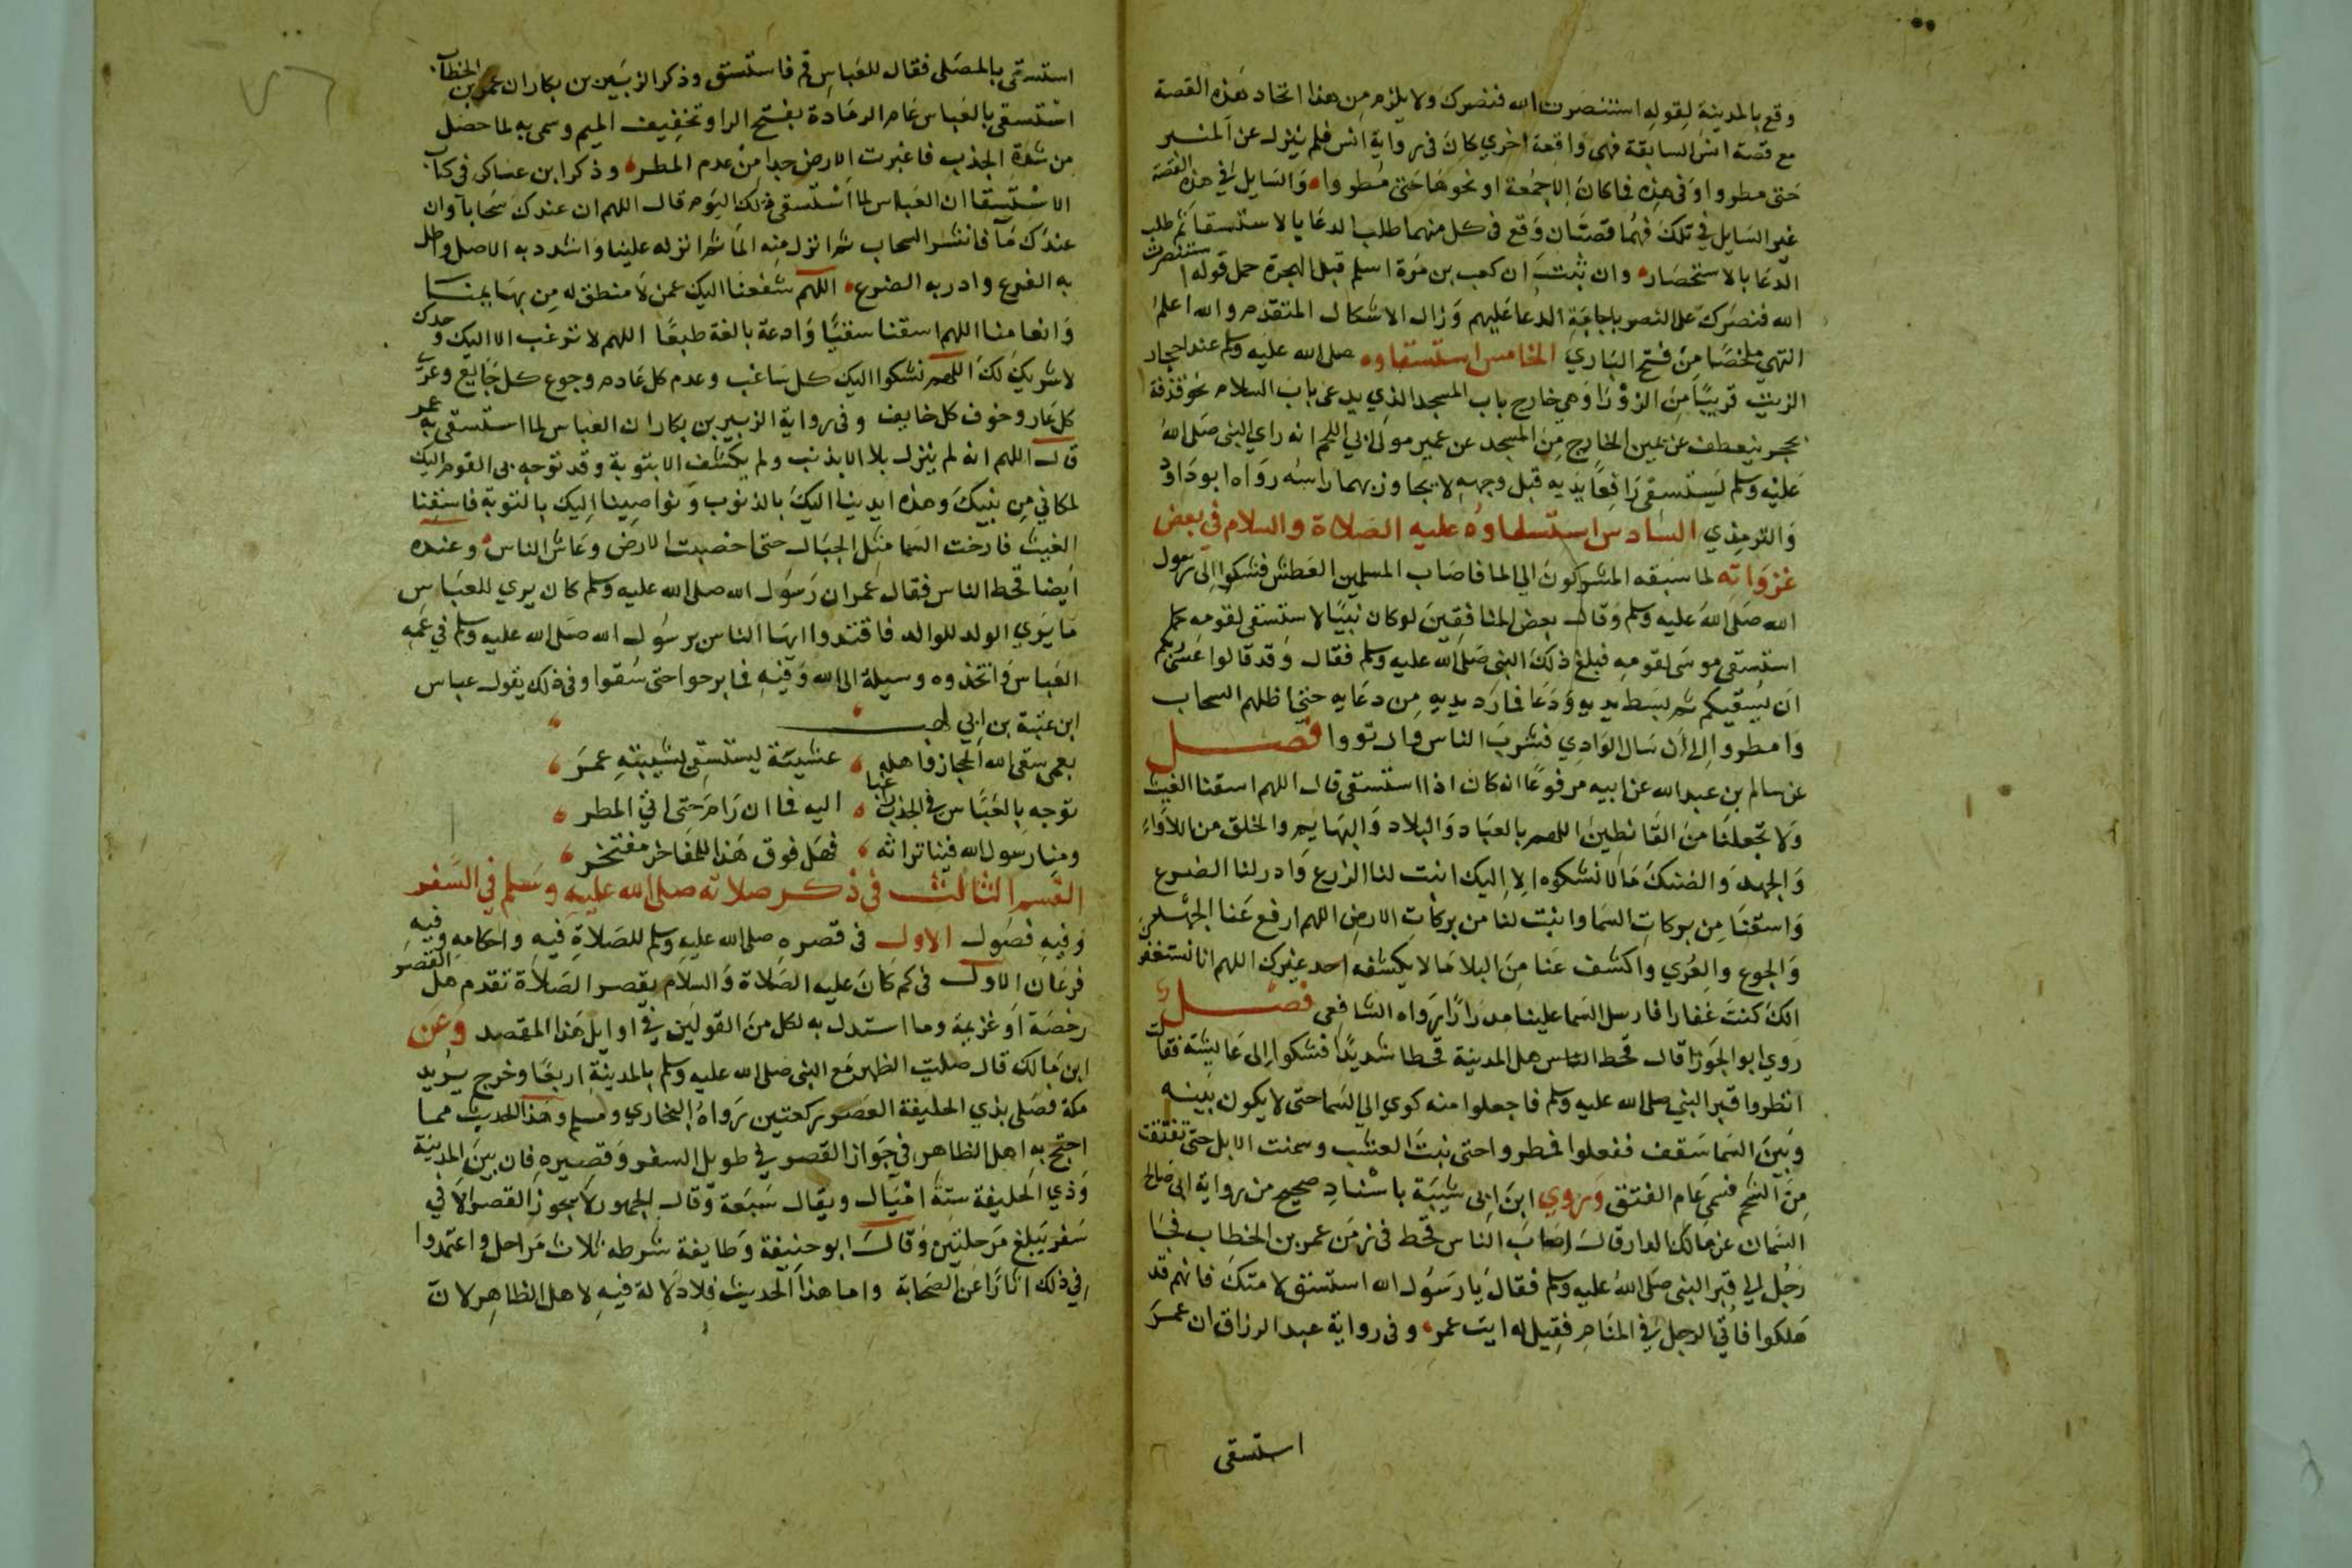 وقع بالمدينة لقوله استنصرت الله فنصرك ولا يلزم من هذا اتحاد هذه القصة
مع قصة انس السابقة فهي واقعة اخري كان في رواية انس فلم ينزل عن المنبر
حتى مطروا وفي هذه فما كان الا جمعة او نحوها حتى مطروا والسايل في هذه القصة
غير السايل في تلك فهما قصتان وقع في كل منهما طلب الدعا بالاستسقا ثم طلب
الدعا بالاستصحار وان ثبت ان كعب بن مرة اسلم قبل الهجرة حمل قوله استنصرت
الله فنصرك على النصر باجابة الدعا عليهم وزال الاشكال المتقدم والله اعلم
انتهي ملخصا من فتح الباري الخامس استسقاوه صلى الله عليه وسلم عند احجار
الزيت قريبا من الزوراء وهي خارج باب المسجد الذي يدعى باب السلام نحو قذفة
بحجر ينعطف عن يمين الخارج من المسجد عن عمير مولى ابي اللحم انه راي النبي صلى الله
عليه وسلم يستسقي رافعا يديه قبل وجهه لا يجاوز بهما راسه رواه ابو داود
والترمذي السادس استسقاوه عليه الصلاة والسلام في بعض
غزواته لما سبقه المشركون الى الما فاصاب المسلمين العطش فشكوا الى رسول
الله صلى الله عليه وسلم وقال بعض المنافقين لو كان نبيا لاستسقى لقومه كما
استسقى موسى لقومه فبلغ ذلك النبي صلى الله عليه وسلم فقال وقد قالوا عسى ربكم
ان يسقيكم ثم بسط يديه ودعا فما رد يديه من دعايه حتى اظلهم السحاب
وامطروا الى ان سال الوادي فشرب الناس وارتووا فصل
عن سالم بن عبد الله عن ابيه مرفوعا انه كان اذا استسقى قال اللهم اسقنا الغيث
ولا تجعلنا من القانطين اللهم بالعباد والبلاد والبهايم والخلق من اللاواء
والجهد والضنك ما لا نشكوه الا اليك انبت لنا الزرع وادر لنا الضرع
واسقنا من بركات السما وانبت لنا من بركات الارض اللهم ارفع عنا الجهد
والجوع والعري واكشف عنا من البلا ما لا يكشفه احد غيرك اللهم انا نستغفر
انك كنت غفارا فارسل السما علينا مدرارا رواه الشافعي فصل
روي ابو الجوزا قال قحط الناس اهل المدينة قحطا شديدا فشكوا الى عايشة فقالت
انظروا قبر النبي صلى الله عليه وسلم فاجعلوا منه كوي الى السما حتى لا يكون بينه
وبين السما سقف ففعلوا فمطروا حتى نبت العشب وسمنت الابل حتى تفتقت
من الشحم فسمي عام الفتق وروي ابن ابي شيبة باسناد صحيح من رواية ابي صالح
السمان عن مالك الدار قال اصاب الناس قحط في زمن عمر بن الخطاب فجا
رجل الى قبر النبي صلى الله عليه وسلم فقال يا رسول الله استسق لامتك فانهم قد
هلكوا فاتي الرجل في المنام فقيل له ايت عمر وفي رواية عبد الرزاق ان عمر
استسقى
استسقى بالمصلى فقال للعباس قم فاستسق وذكر الزبير بن بكار ان عمر بن الخطاب
استسقى بالعباس عام الرمادة بفتح الرا وتخفيف الميم وسمى به لما حصل
من شدة الجدب فاغبرت الارض جدا من عدم المطر وذكر ابن عساكر في كتاب
الاستسقا ان العباس لما استسقى ذلك اليوم قال اللهم ان عندك سحابا وان
عندك ما فانشر السحاب ثم انزل منه الما ثم انزله علينا واشدد به الاصل واطل
به الفرع وادر به الضرع اللهم شفعنا اليك عمن لا منطق له من بهايمنا
وانعامنا اللهم اسقنا سقيا وادعة بالغة طبقا اللهم لا نرغب الا اليك وحدك
لا شريك لك اللهم نشكوا اليك كل ساغب وعدم كل عادم وجوع كل جايع وعري
كل عار وخوف كل خايف وفي رواية الزبير بن بكار ان العباس لما استسقى به عمر
قال اللهم انه لم ينزل بلا الا بذنب ولم يكشف الا بتوبة وقد توجه بي القوم اليك
لمكاني من نبيك وهذه ايدينا اليك بالذنوب ونواصينا اليك بالتوبة فاسقنا
الغيث فارخت السما مثل الجبال حتى اخصبت الارض وعاش الناس وعنده
ايضا قحط الناس فقال عمر ان رسول الله صلى الله عليه وسلم كان يري للعباس
ما يري الولد للوالد فاقتدوا ايها الناس برسول الله صلى الله عليه وسلم في عمه
العباس واتخذوه وسيلة الى الله وفيه فما برحوا حتى سقوا وفي ذلك يقول عباس
ابن عتبة بن ابي لهب
بعمي سقى الله الحجاز واهله عشية يستسقي بشيبته عمر
توجه بالعباس في الجدب راغبا اليه فما ان رام حتى اتي المطر
ومنا رسول الله فينا تراثه فهل فوق هذا للمفاخر مفتخر
القسم الثالث في ذكر صلاته صلى الله عليه وسلم في السفر
وفيه فصول الاول في قصره صلى الله عليه وسلم للصلاة فيه واحكامه وفيه
فرعان الاول في كم كان عليه الصلاة والسلام يقصر الصلاة تقدم هل القصر
رخصة او عزيمة وما استدل به لكل من القولين في اوايل هذا المقصد وعن
ابن مالك قال صليت الظهر مع النبي صلى الله عليه وسلم بالمدينة اربعا وخرج يريد
مكة فصلى بذي الحليفة العصر ركعتين رواه البخاري ومسلم وهذا الحديث مما
احتج به اهل الظاهر في جواز القصر في طويل السفر وقصيره فان بين المدينة
وذي الحليفة ستة اميال ويقال سبعة وقال الجمهور لا يجوز القصر الا في
سفر يبلغ مرحلتين وقال ابو حنيفة وطايفة شرطه ثلاث مراحل واعتمدوا
في ذلك اثارا عن الصحابة واما هذا الحديث فلا دلالة فيه لاهل الظاهر لان